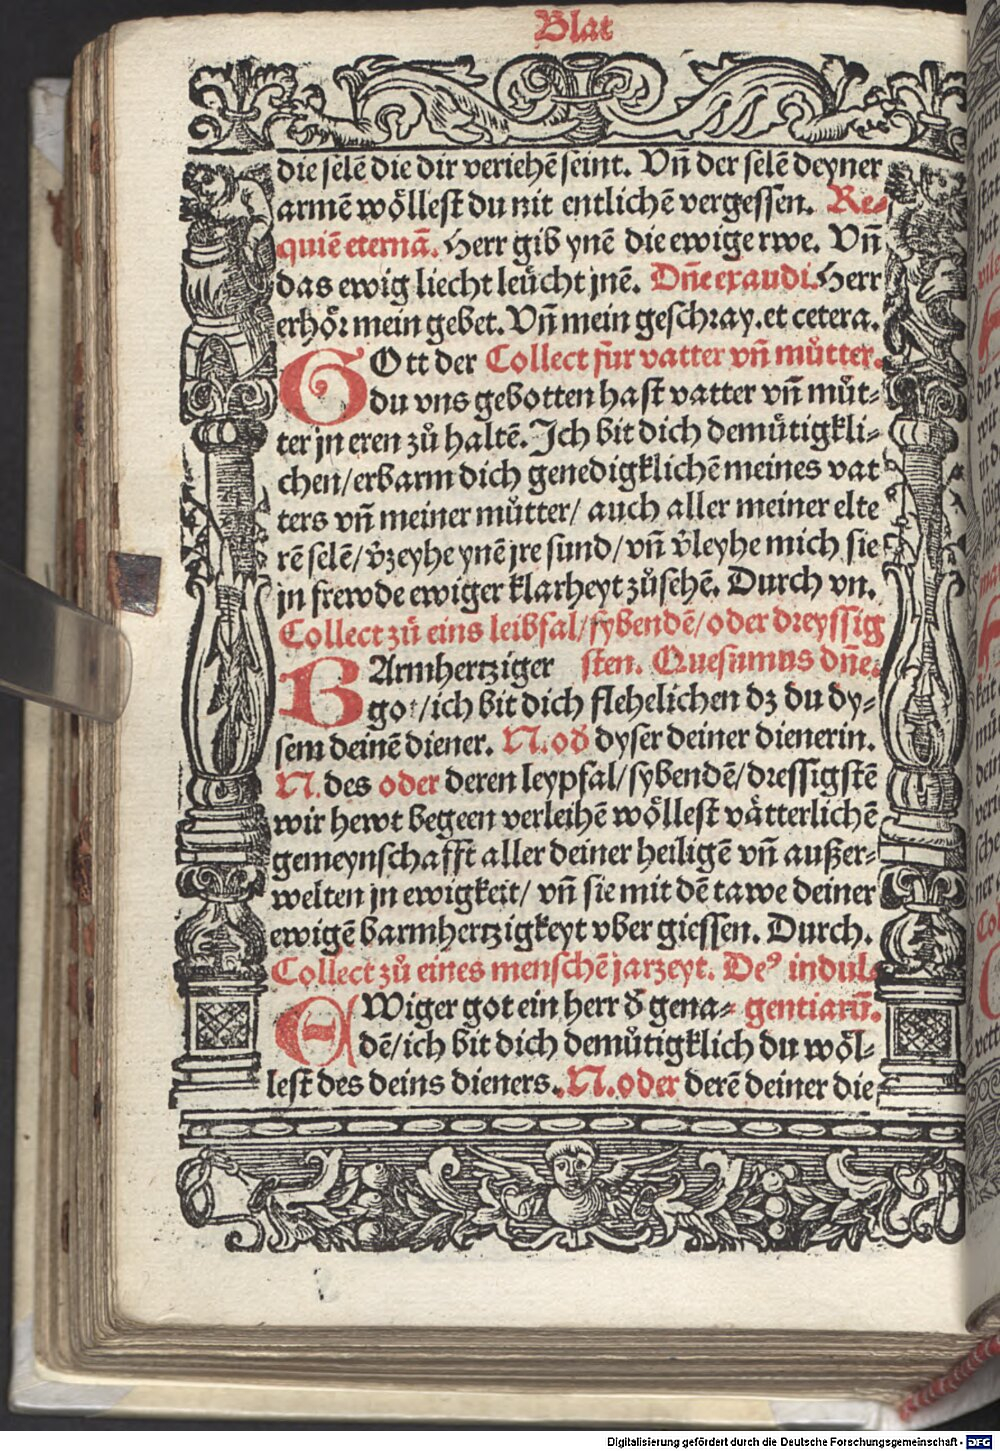 Blat
die selē die dir veriehē seint. Vñ der selē deyner
armē wöllest du nit entlichē vergessen. Re⸗
quiē eternā. Herr gib ynē die ewige rwe. Vñ
das ewig liecht leücht jnē. Dñe exaudi. Herr
erhör mein gebet. Vñ mein geschray. et cetera.
GOtt der Collect für vatter vñ můtter.
du vns gebotten hast vatter vñ můt⸗
ter jn eren zů haltē. Ich bit dich demůtigkli⸗
chen/ erbarm dich genedigklichē meines vat
ters vñ meiner můtter/ auch aller meiner elte
rē selē/ v̄zeyhe ynē jre sund/ vñ v̄leyhe mich sie
jn frewde ewiger klarheyt zůsehē. Durch vn.
Collect zů eins leibfal/ sybendē/ oder dreyssig
BArmhertziger sten. Quesumus dñe.
got/ ich bit dich flehelichen dz du dy⸗
sem deinē diener. N. od̄ dyser deiner dienerin.
N. des oder deren leypfal/ sybendē/ dressigstē
wir hewt begeen verleihē wöllest vätterlichē
gemeynschafft aller deiner heiligē vñ außer⸗
welten jn ewigkeit/ vñ sie mit dē tawe deiner
ewigē barmhertzigkeyt vber giessen. Durch.
Collect zů eines menschē jarzeyt. Deꝰ indul
EWiger got ein herr d̄ gena⸗ gentiarū.
dē/ ich bit dich demůtigklich du wöl⸗
lest des deins dieners. N. oder derē deiner die
Digitalisierung gefördert durch die Deutsche Forschungsgemeinschaft - DFG